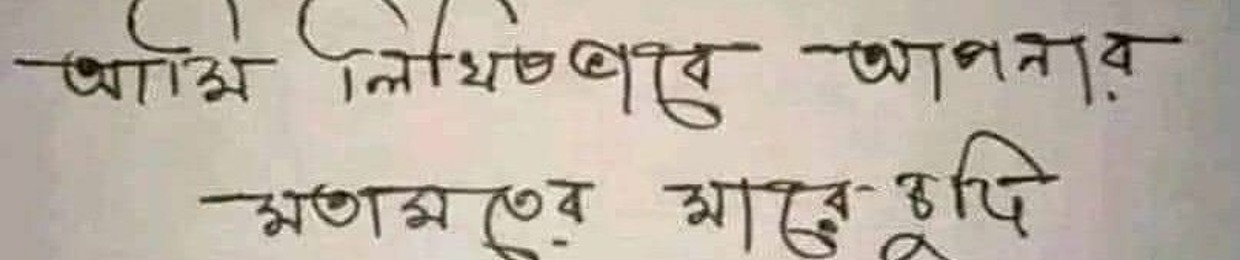 আমি লিখিতভাবে আপনার
মতামতের মারে চুদি